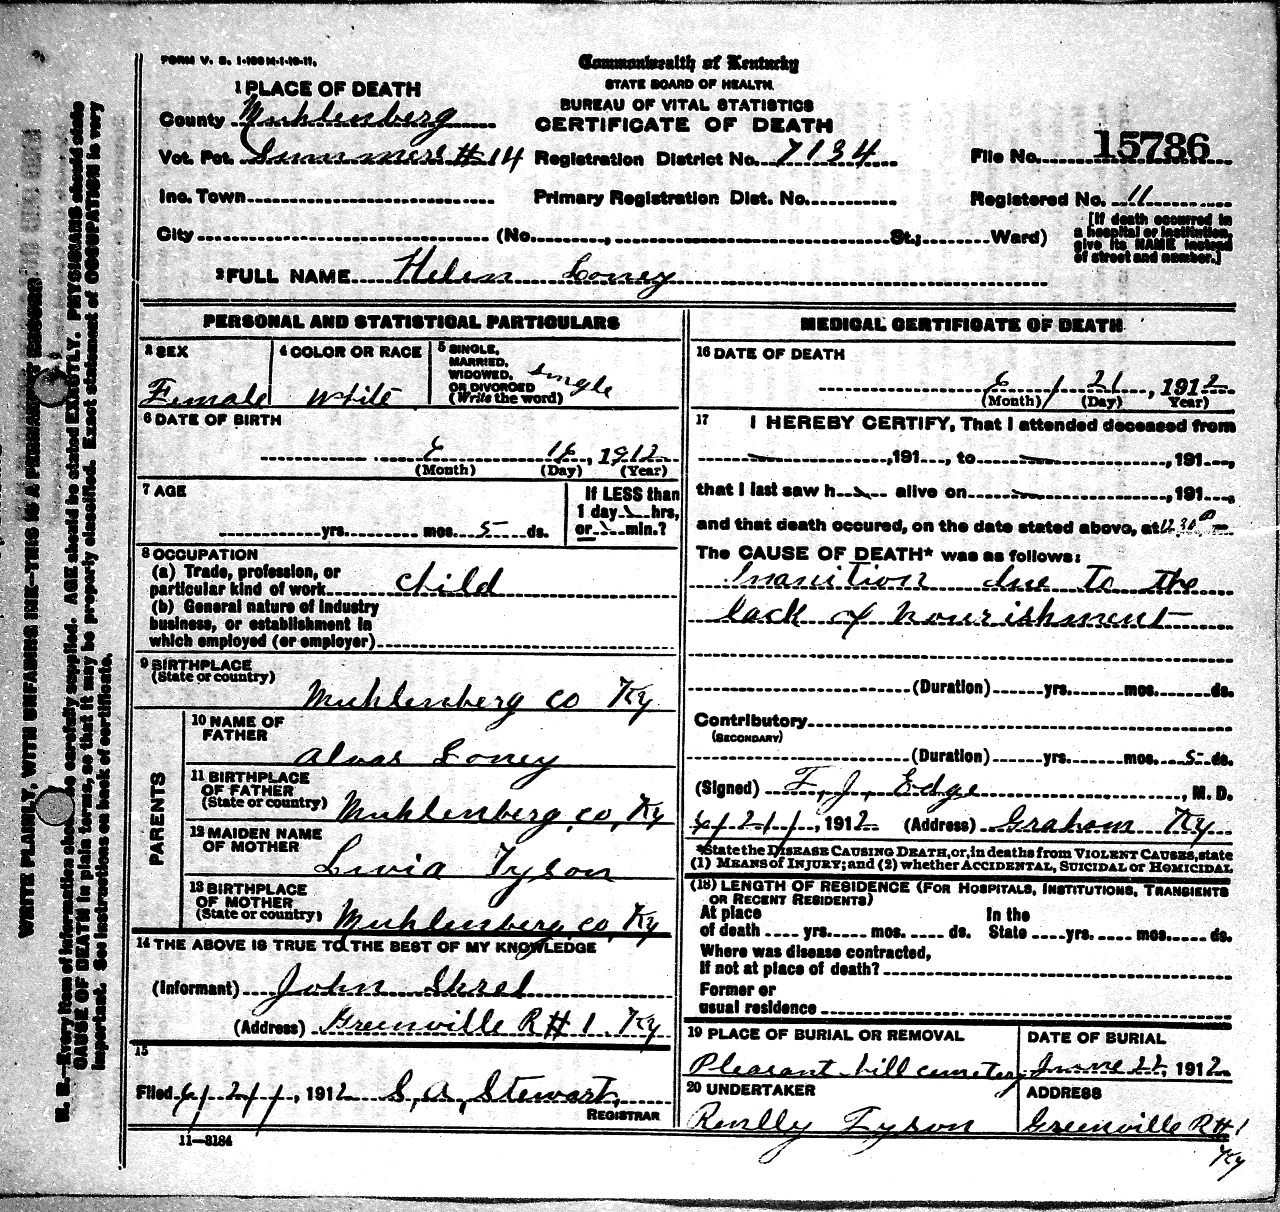 FORM V. S. 1-100 M-1-10-11.
Commonwealth of Kentucky
STATE BOARD OF HEALTH.
BUREAU OF VITAL STATISTICS
CERTIFICATE OF DEATH
1 PLACE OF DEATH
County Muhlenberg
Vot. Pct. Summers # 14 Registration District No. 7134 File No. 15786
Inc. Town Primary Registration Dist. No. Registered No. 11
City (No. , St.; Ward)
[If death occurred in
a hospital or institution,
give its NAME instead
of street and number.]
2 FULL NAME Helen Loney
PERSONAL AND STATISTICAL PARTICULARS
3 SEX
Female
4 COLOR OR RACE
White
5 SINGLE,
MARRIED,
WIDOWED,
OR DIVORCED
(Write the word)
Single
6 DATE OF BIRTH
6 16, 1912
(Month) (Day) (Year)
7 AGE
yrs. mos. 5 ds.
If LESS than
1 day hrs,
or min.?
8 OCCUPATION
(a) Trade, profession, or
particular kind of work child
(b) General nature of industry
business, or establishment in
which employed (or employer)
9 BIRTHPLACE
(State or country)
Muhlenberg co Ky
PARENTS
10 NAME OF
FATHER
Alvas Loney
11 BIRTHPLACE
OF FATHER
(State or country) Muhlenberg, co, Ky
12 MAIDEN NAME
OF MOTHER
Livia Tyson
13 BIRTHPLACE
OF MOTHER
(State or country) Muhlenberg, co, Ky
14 THE ABOVE IS TRUE TO THE BEST OF MY KNOWLEDGE
(Informant) John
(Address) Greenville R#1 Ky
15
Filed 6/21/, 1912 S, A, Stewart,
REGISTRAR
11—3184
MEDICAL CERTIFICATE OF DEATH
16 DATE OF DEATH
6 / 21, 1912
(Month) (Day) Year)
17 I HEREBY CERTIFY, That I attended deceased from
, 191 , to , 191 ,
that I last saw h alive on , 191 ,
and that death occured, on the date stated above, at 12.30 P m.
The CAUSE OF DEATH* was as follows:
Inanition due to the
lack of nourishment
(Duration) yrs. mos. ds.
Contributory
(SECONDARY)
(Duration) yrs. mos. 5 ds.
(Signed) F, J, Edge , M. D.
6/21/, 1912 (Address) Graham Ky
*State the DISEASE CAUSING DEATH, or, in deaths from VIOLENT CAUSES, state
(1) MEANS of INJURY; and (2) whether ACCIDENTAL, SUICIDAL or HOMICIDAL
(18) LENGTH OF RESIDENCE (FOR HOSPITALS, INSTITUTIONS, TRANSIENTS
OR RECENT RESIDENTS)
At place In the
of death yrs. mos. ds. State yrs. mos. ds.
Where was disease contracted,
If not at place of death?
Former or
usual residence
19 PLACE OF BURIAL OR REMOVAL
Pleasant hill cemetery
DATE OF BURIAL
June 22, 1912
20 UNDERTAKER
Renlly Tyson
ADDRESS
Greenville R#1
Ky
N. B.—Every item of information should be carefully supplied. AGE should be stated EXACTLY. PHYSICIANS should state
CAUSE OF DEATH in plain terms, so that it may be properly classified. Exact statement of OCCUPATION is very
important. See instructions on back of certificate.
WRITE PLAINLY, WITH UNFADING INK—THIS IS A PERMANENT RECORD